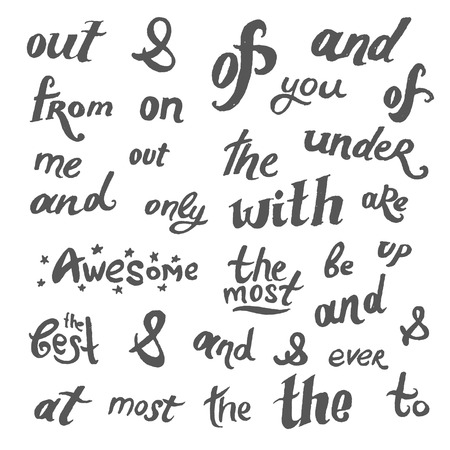 out & of and
from on you of
me out the under
and only with are
Awesome the most be up
the best & and & ever and &
at most the the to